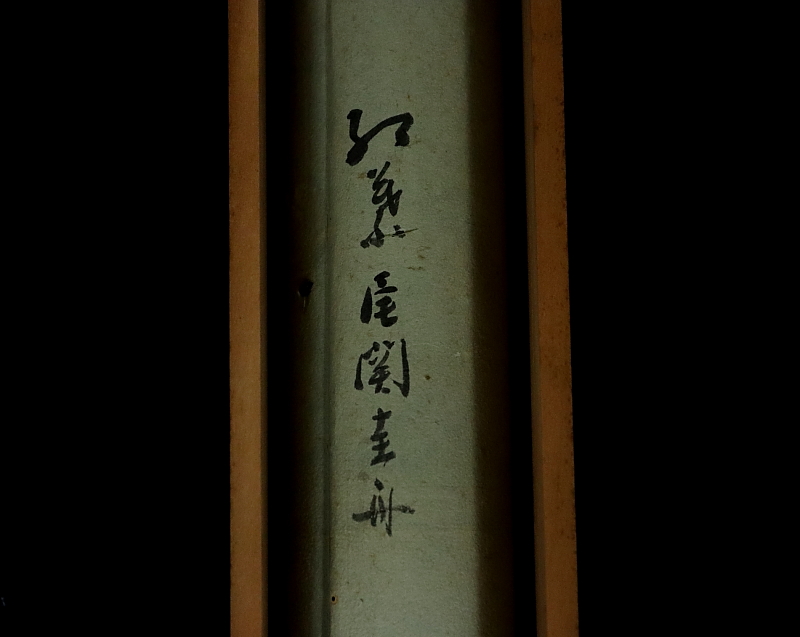 紅葉 尾関圭舟